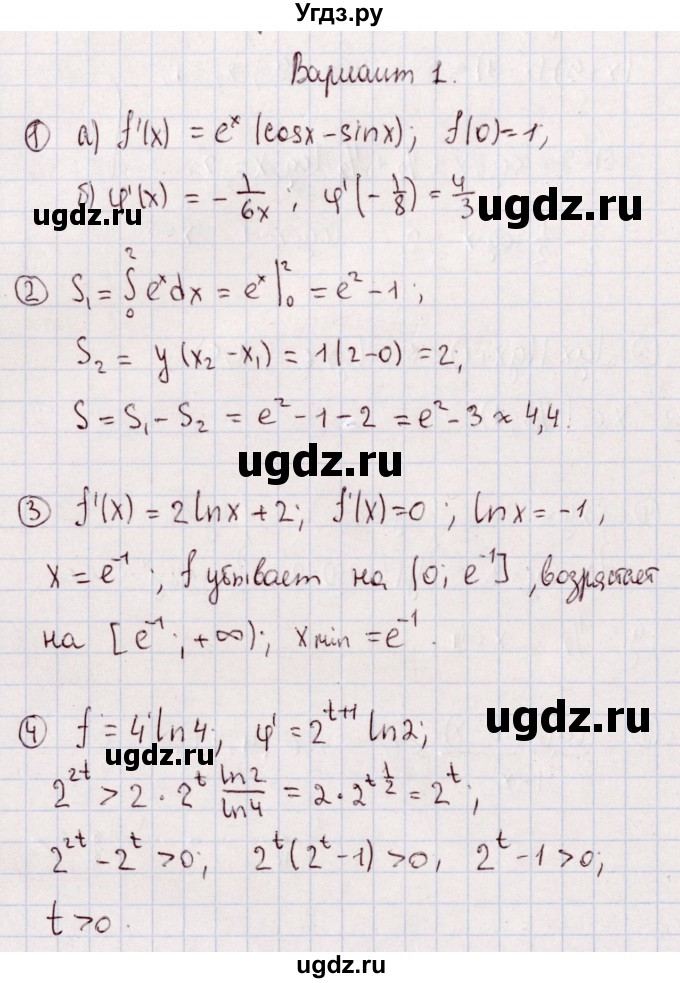 Угдз.ру
Вариант 1.
① а) f'(x) = e^x (cosx - sinx); f'(0)=1;
б) φ'(x) = -1/6x ; φ'(-1/8) = 4/3
ugdz.ru
ugdz.ru
② S₁ = ∫₀² e^x dx = e^x |₀² = e² - 1 ;
S₂ = y (x₂ - x₁) = 1(2-0) = 2;
S = S₁ - S₂ = e² - 1 - 2 = e² - 3 ≈ 4,4.
ugdz.ru
③ f'(x) = 2lnx + 2; f'(x)=0 ; lnx = -1,
x = e⁻¹ ; f убывает на (0; e⁻¹] ; возрастает
на [e⁻¹; +∞); x min = e⁻¹.
ugdz.ru
④ f' = 4^t ln4; φ' = 2^(t+1) ln2;
ugdz.ru
2^(2t) > 2 · 2^t ln2/ln4 = 2 · 2^t 1/2 = 2^t;
2^(2t) - 2^t > 0; 2^t (2^t - 1) > 0, 2^t - 1 > 0;
t > 0.
ugdz.ru